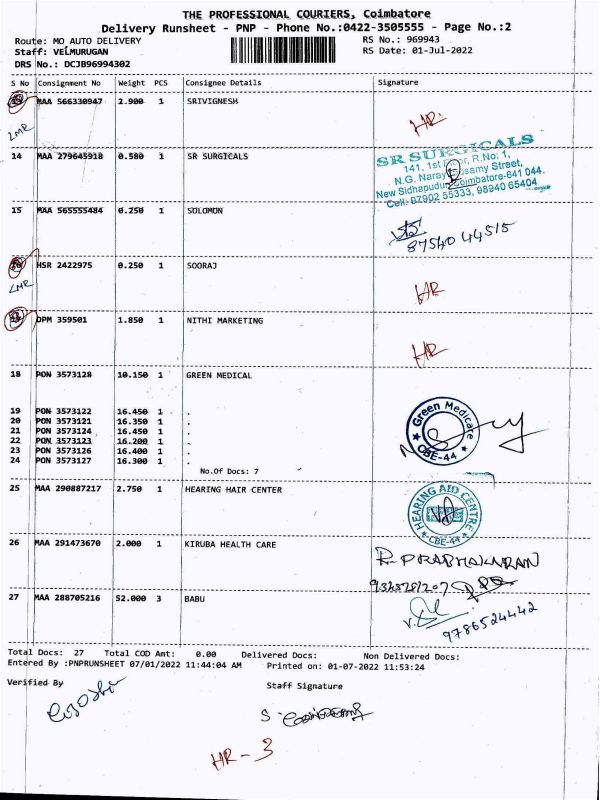 THE PROFESSIONAL COURIERS, Coimbatore
Delivery Runsheet - PNP - Phone No.:0422-3505555 - Page No.:2
Route: MO AUTO DELIVERY RS No.: 969943
Staff: VELMURUGAN RS Date: 01-Jul-2022
DRS No.: DCJB96994302
S No Consignment No Weight PCS Consignee Details Signature
MAA 566330947 2.900 1 SRIVIGNESH
HR
LMR
14 MAA 279645918 0.580 1 SR SURGICALS
SR SURGICALS
141, 1st Floor, R.No: 1,
N.G. Narayanasamy Street,
New Sidhapudur, Coimbatore-641 044.
Cell: 97902 55333, 98940 65404
15 MAA 565555484 0.250 1 SOLOMON
87540 44515
HSR 2422975 0.250 1 SOORAJ
LMR
HR
DPM 359501 1.850 1 NITHI MARKETING
HR
18 PON 3573128 10.150 1 GREEN MEDICAL
19 PON 3573122 16.450 1 .
20 PON 3573121 16.350 1 .
21 PON 3573124 16.450 1 .
22 PON 3573123 16.200 1 .
23 PON 3573126 16.400 1 .
24 PON 3573127 16.300 1 .
Green Medicare
CBE-44
No.Of Docs: 7
25 MAA 290887217 2.750 1 HEARING HAIR CENTER
HEARING AID CENTRE
CBE-44
26 MAA 291473670 2.000 1 KIRUBA HEALTH CARE
R. PRABHAKARAN
27 MAA 288705216 52.000 3 BABU
9786524442
Total Docs: 27 Total COD Amt: 0.00 Delivered Docs: Non Delivered Docs:
Entered By :PNPRUNSHEET 07/01/2022 11:44:04 AM Printed on: 01-07-2022 11:53:24
Verified By Staff Signature
HR - 3